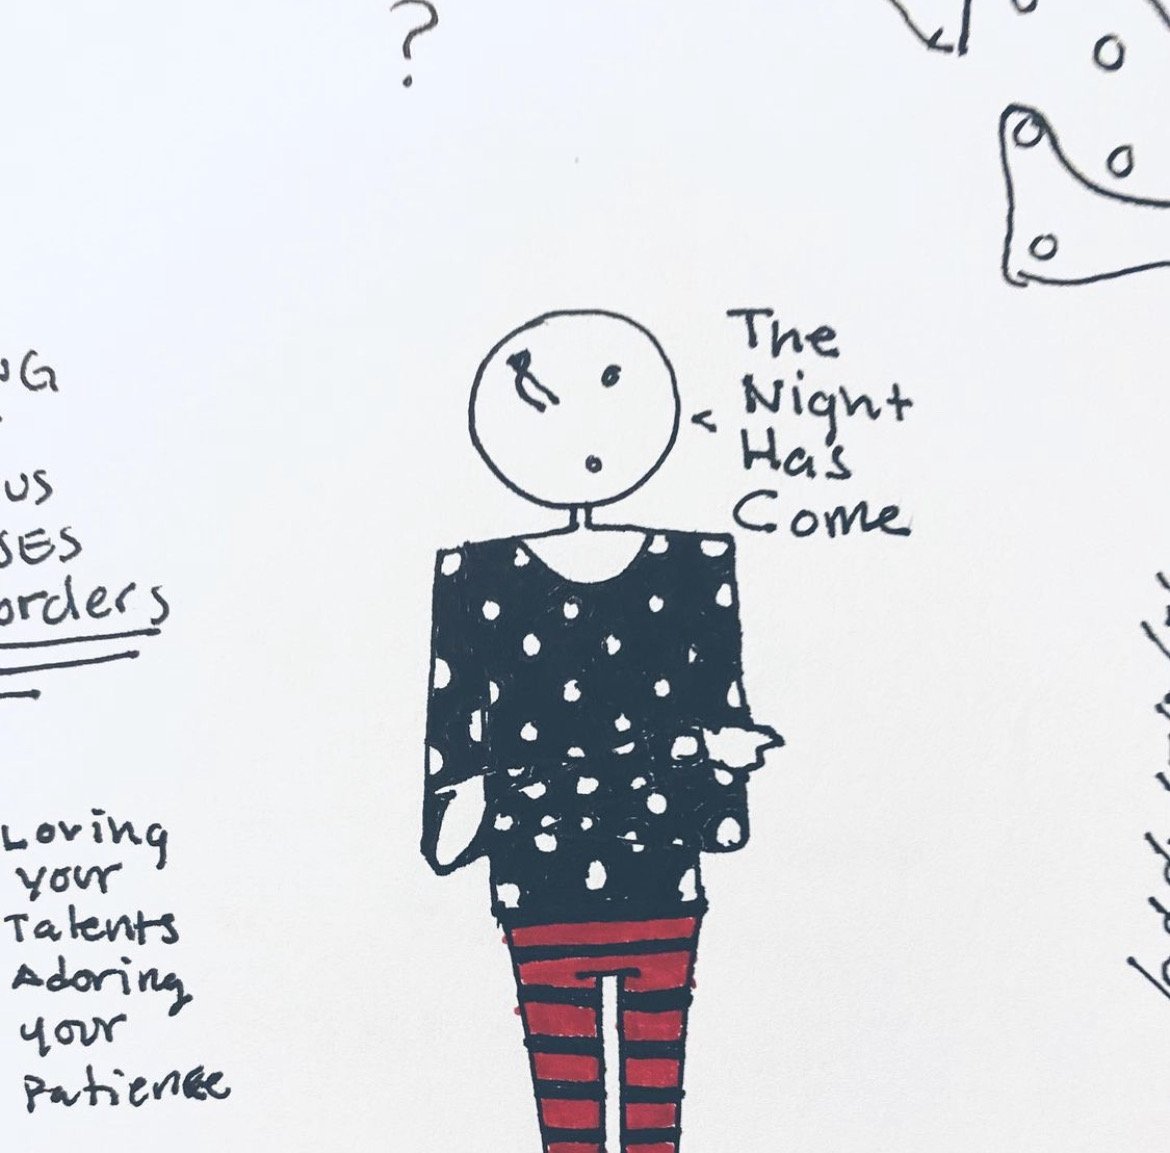 ?
The
Night
Has
Come
<
NG
US
SES
orders
Loving
your
Talents
Adoring
your
Patience